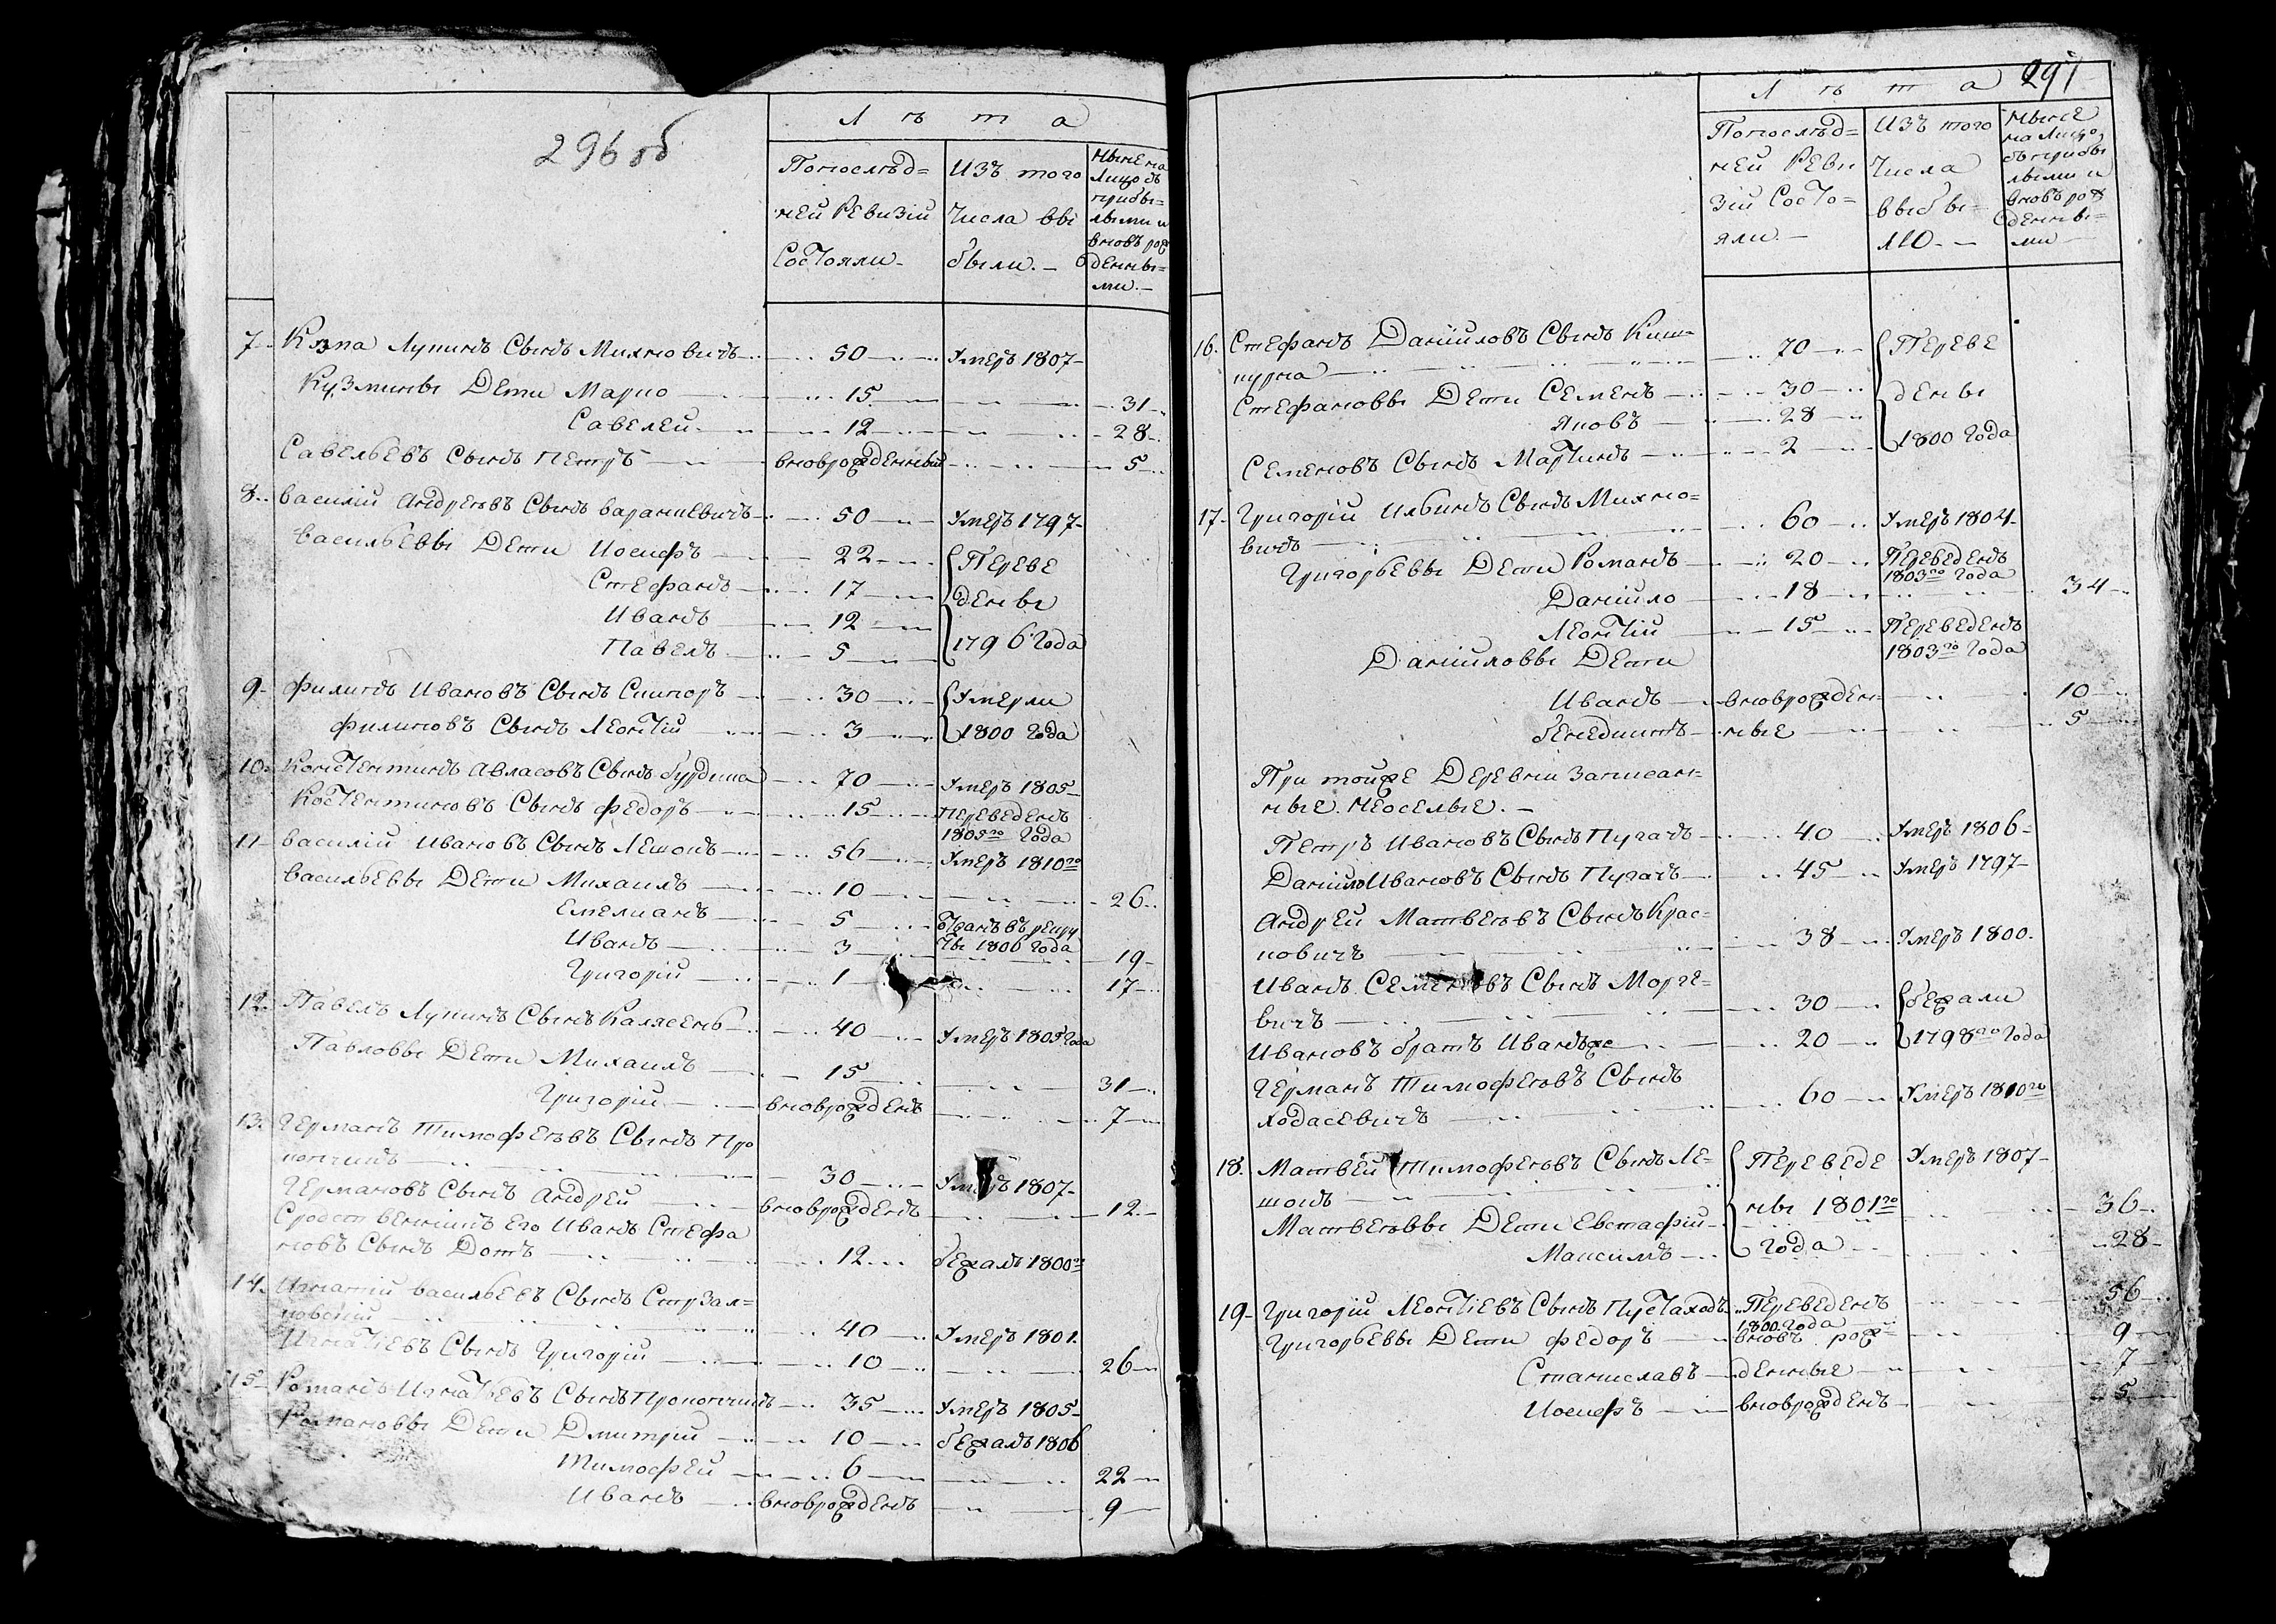 296 об
Лѣта
Попослѣд=
ней Ревизіи
Состояли
Изъ того
Числа вы
были.
Нынѣ на
Лицо съ
прибы=
лыми и
вновь рож
денны=
ми.
7 Кузма Лупинъ Сынъ Михновичъ 50 Умеръ 1807
Кузмины Дети Марко 15 31
Савелей 12 28
Савельевъ Сынъ Петръ вновьрожденный 5
8 Василій Андреевъ Сынъ Вараниевичъ 50 Умеръ 1797
Васильевы Дети Иосифъ 22 Переве
Стефанъ 17 дены
Иванъ 12
Павелъ 5 1796 Года
9 Филипъ Ивановъ Сынъ Сикоръ 30 Умерли
Филиповъ Сынъ Леонтій 3 1800 Года
10 Констентинъ Авласовъ Сынъ Бурдика 70 Умеръ 1805
Костентиновъ Сынъ Федоръ 15 переведенъ
Года
11 Василій Ивановъ Сынъ Лешокъ 56 Умеръ 1810го
Васильевы Дети Михаилъ 10 26
Емелианъ 5 отданъ въ рекру
Иванъ 3 ты 1806 Года 19
Григорій 1 17
12 Павелъ Лупинъ Сынъ Калясенъ 40 Умеръ 1805 Года
Павловы Дети Михаилъ 15 31
Григорій вновьрожденъ 7
13 Германъ Тимофеевъ Сынъ Про
копчикъ 30 Умеръ 1807
Германовъ Сынъ Андрей вновьрожденъ 12
Сродственникъ Его Иванъ Стефа
новъ Сынъ Дотъ 12 бежалъ 1800го
14 Игнатій Васильевъ Сынъ Стрзал=
ковскій 40 Умеръ 1801.
Игнатіевъ Сынъ Григорій 10 26
15 Романъ Игнатьевъ Сынъ Прокопчикъ 35 Умеръ 1805
Романовы Дети Дмитрій 10 бежалъ 1806
Тимофей 6 22
Иванъ вновьрожденъ 9
297
Лѣта
Попослѣд=
ней Реви
зіи Состо=
яли
Изъ того
Числа
выбы=
ло
Нынѣ
на Лицо
съ прибы
лыми и
вновь рож
денны=
ми
16. Стефанъ Даніиловъ Сынъ Киш=
курна 70 Переве
Стефановы Дети Семенъ 30 дены
Яковъ 28
Семеновъ Сынъ Мартинъ 2 1800 Года
17 Григорій Ильинъ Сынъ Михно=
вичъ 60 Умеръ 1804
Григорьевы Дети Романъ 20 Переведенъ
1803го Года
Даніило 18 34
Леонтій 15 Переведенъ
1803го Года
Даніиловы Дети
Иванъ вновьрожден= 10
Бенедиктъ ные 5
При тойже Деревни записан=
ные неоселые.
Петръ Ивановъ Сынъ Пугачъ 40 Умеръ 1806
Даніило Ивановъ Сынъ Пугачъ 45 Умеръ 1797
Андрей Матвеевъ Сынъ Крас=
ковичъ 38 Умеръ 1800.
Иванъ Семеновъ Сынъ Морге=
вичъ 30 бежали
Ивановъ братъ Иванъже 20 1798го Года
Германъ Тимофеевъ Сынъ
Ходасевичъ 60 Умеръ 1810го
18. Матвей Тимофеевъ Сынъ Ле= Переведе Умеръ 1807
шокъ ны 1801го
Матвеевы Дети Евстафій 36
Максимъ Года 28
19 Григорій Леонтіевъ Сынъ Пустаходъ Переведенъ 56
1800 года
Григорьевы Дети Федоръ вновь рож= 9
Станиславъ денные 7
Иосифъ вновьрожденъ 5